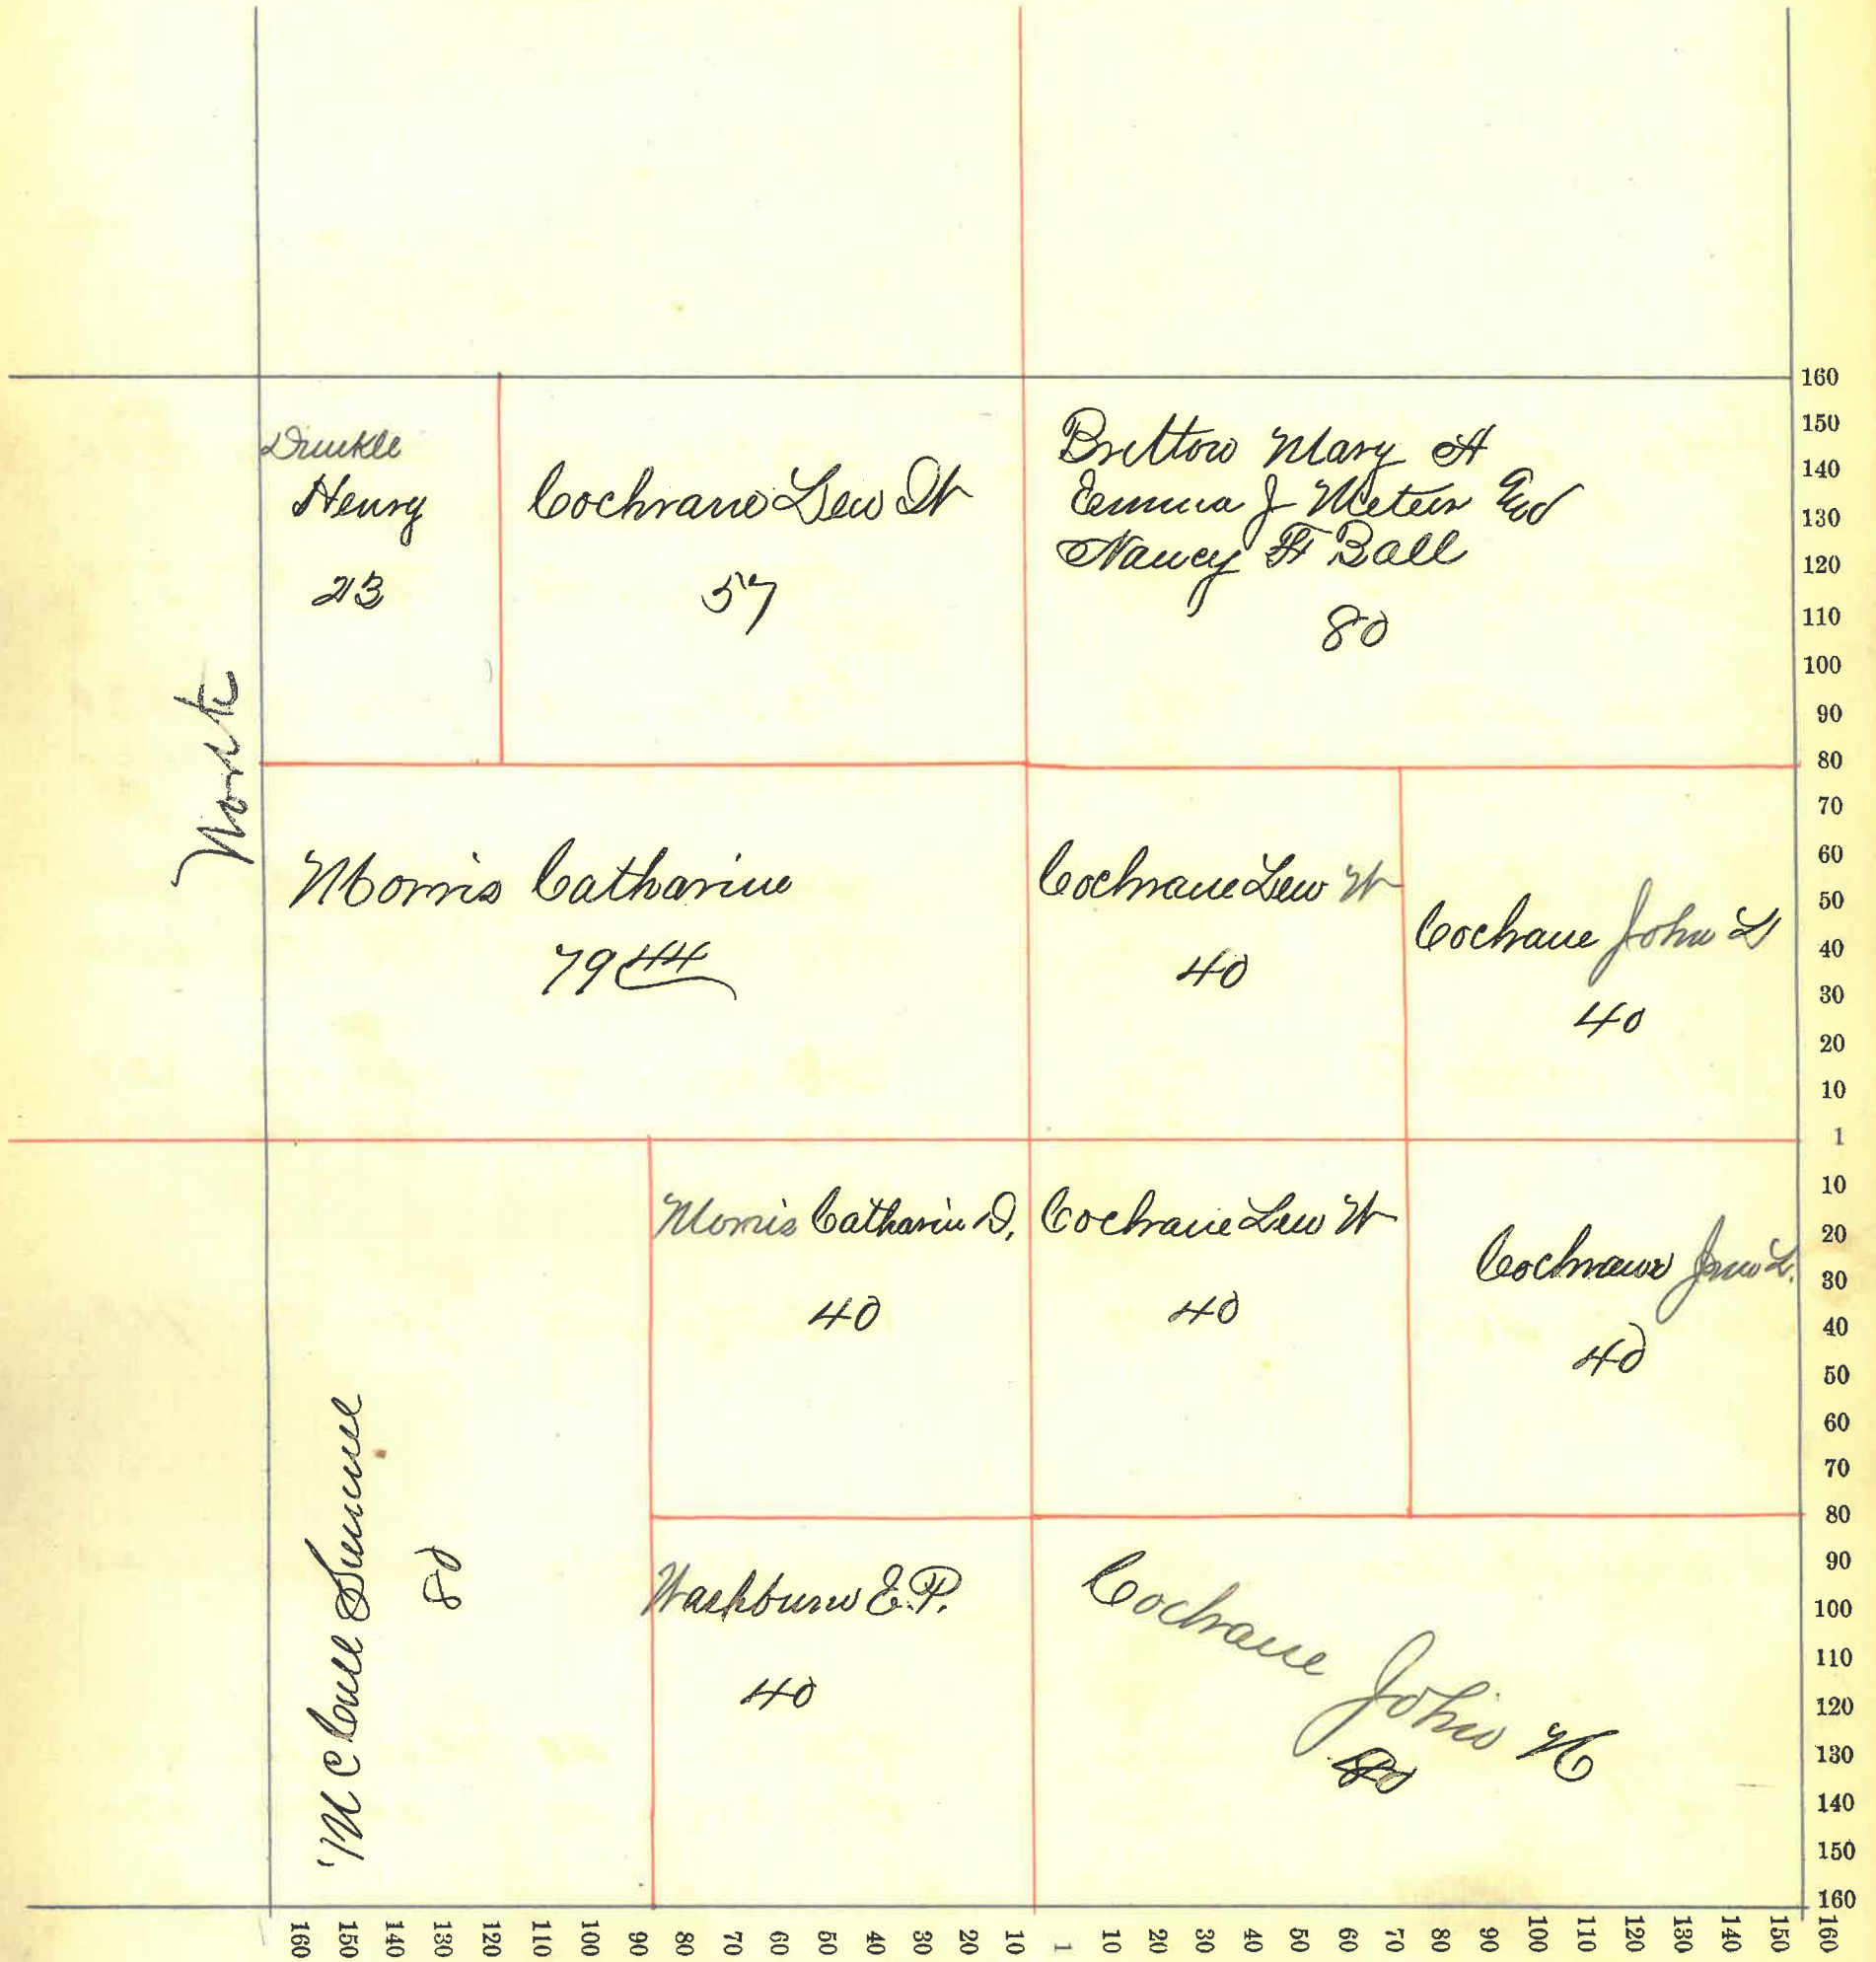 Henry
23
Cochrane Lew W
57
Mary H
Emma J
Nancy F Ball
80
North
Morris Catharine
79 44
Cochrane Lew W
40
Cochrane John L
40
Morris Catharine D.
40
Cochrane Lew W
40
Cochrane Jno L.
40
80
Washburn E.P.
40
Cochrane John
80
160
150
140
130
120
110
100
90
80
70
60
50
40
30
20
10
1
10
20
30
40
50
60
70
80
90
100
110
120
130
140
150
160
160
150
140
130
120
110
100
90
80
70
60
50
40
30
20
10
1
10
20
30
40
50
60
70
80
90
100
110
120
130
140
150
160